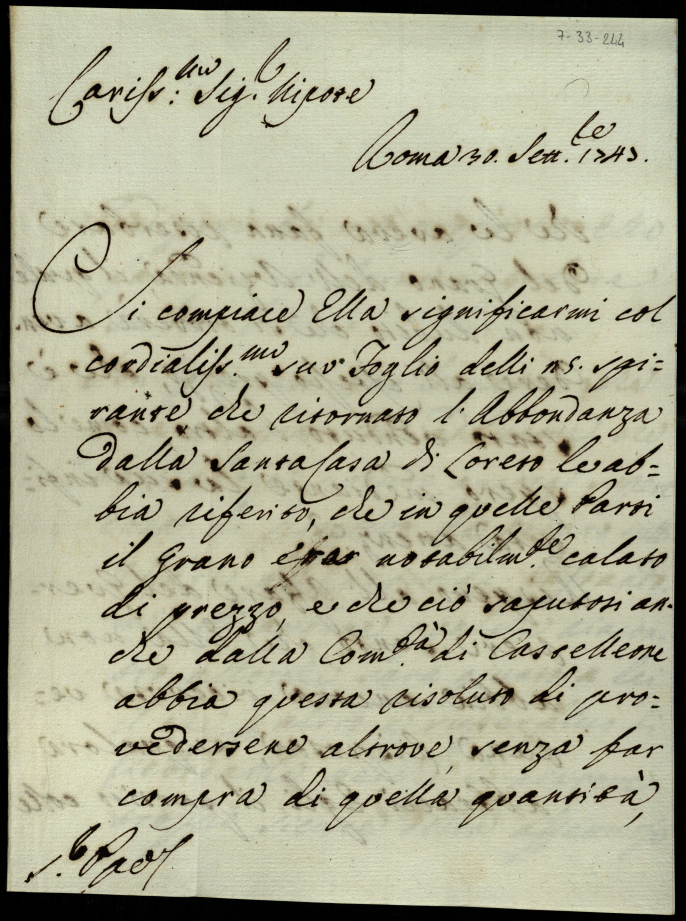 7-33-244
Cariss:mo Sig.r Nipote
Roma 30. Sett.bre 1743.
Si compiace Ella significarmi col
cordialiss.mo suo Foglio delli 25. spi=
rante che ritornato l'Abbondanza
dalla Santa Casa di Loreto le ab=
bia riferito, che in quelle Parti
il grano era notabilm.te calato
di prezzo, e che ciò saputosi an=
che dalla Com.tà di Castellone
abbia questa risoluto di pro=
vedersene altrove, senza far
compra di quella quantità,